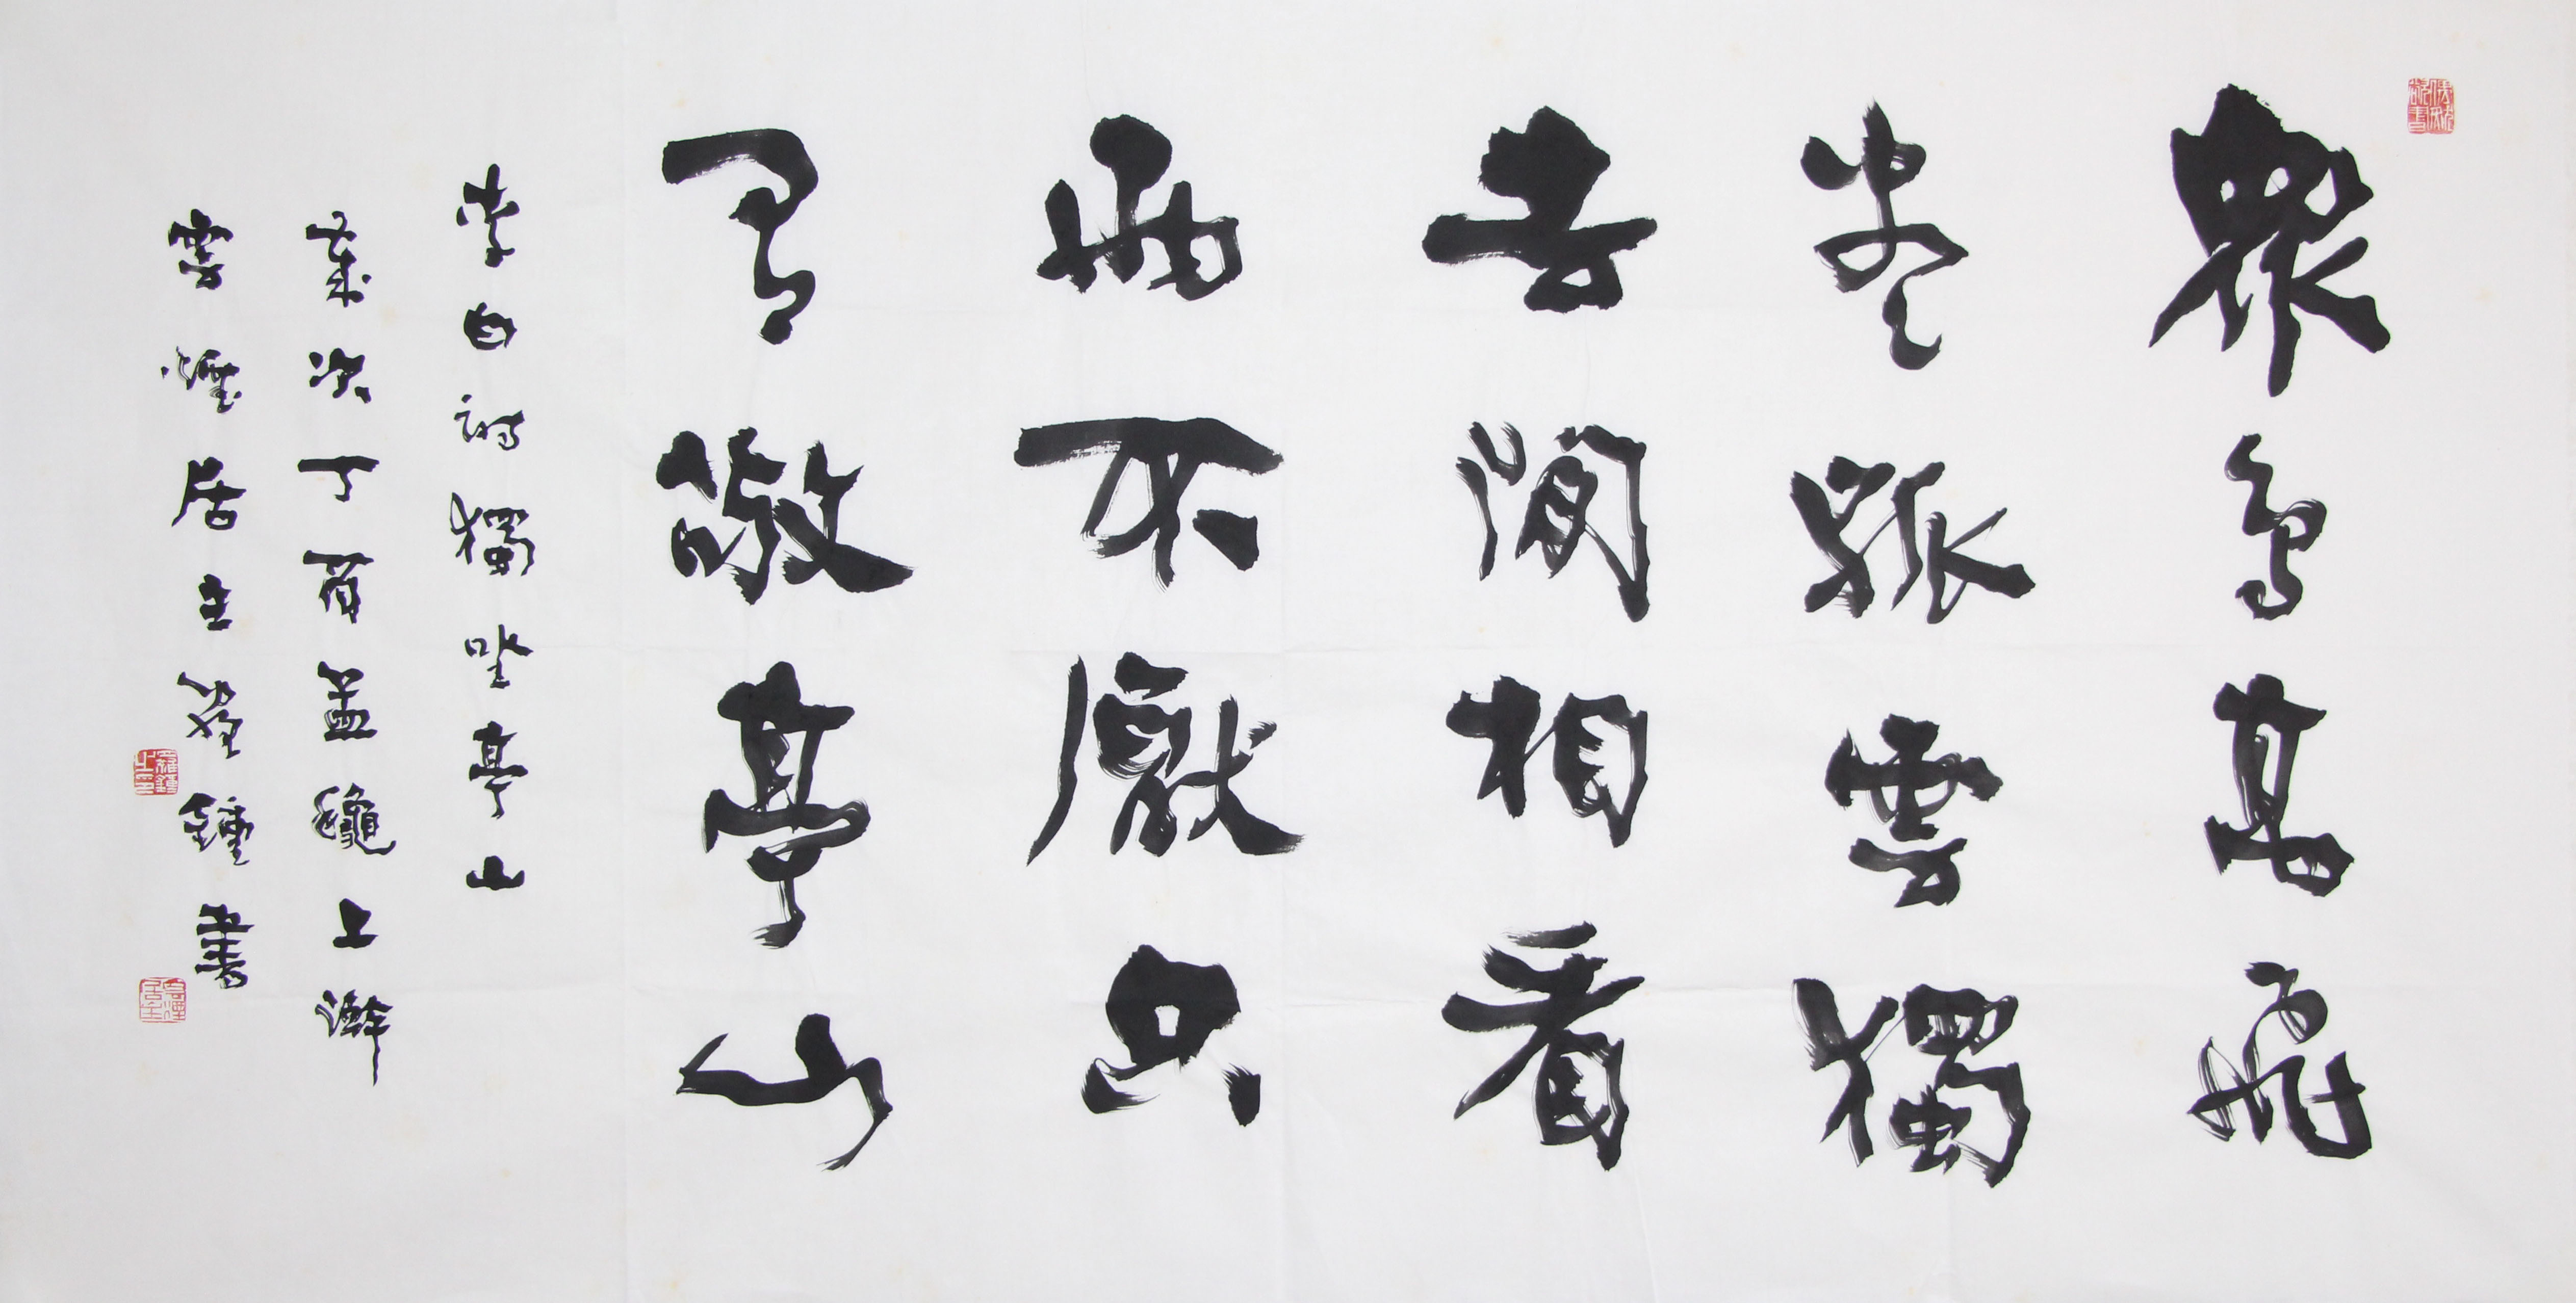 眾鳥高飛
盡孤雲獨
去閒相看
兩不厭只
有敬亭山
李白詩獨坐亭山
歲次丁酉孟龝上澣
雲煙居主鍾書
雲煙居主